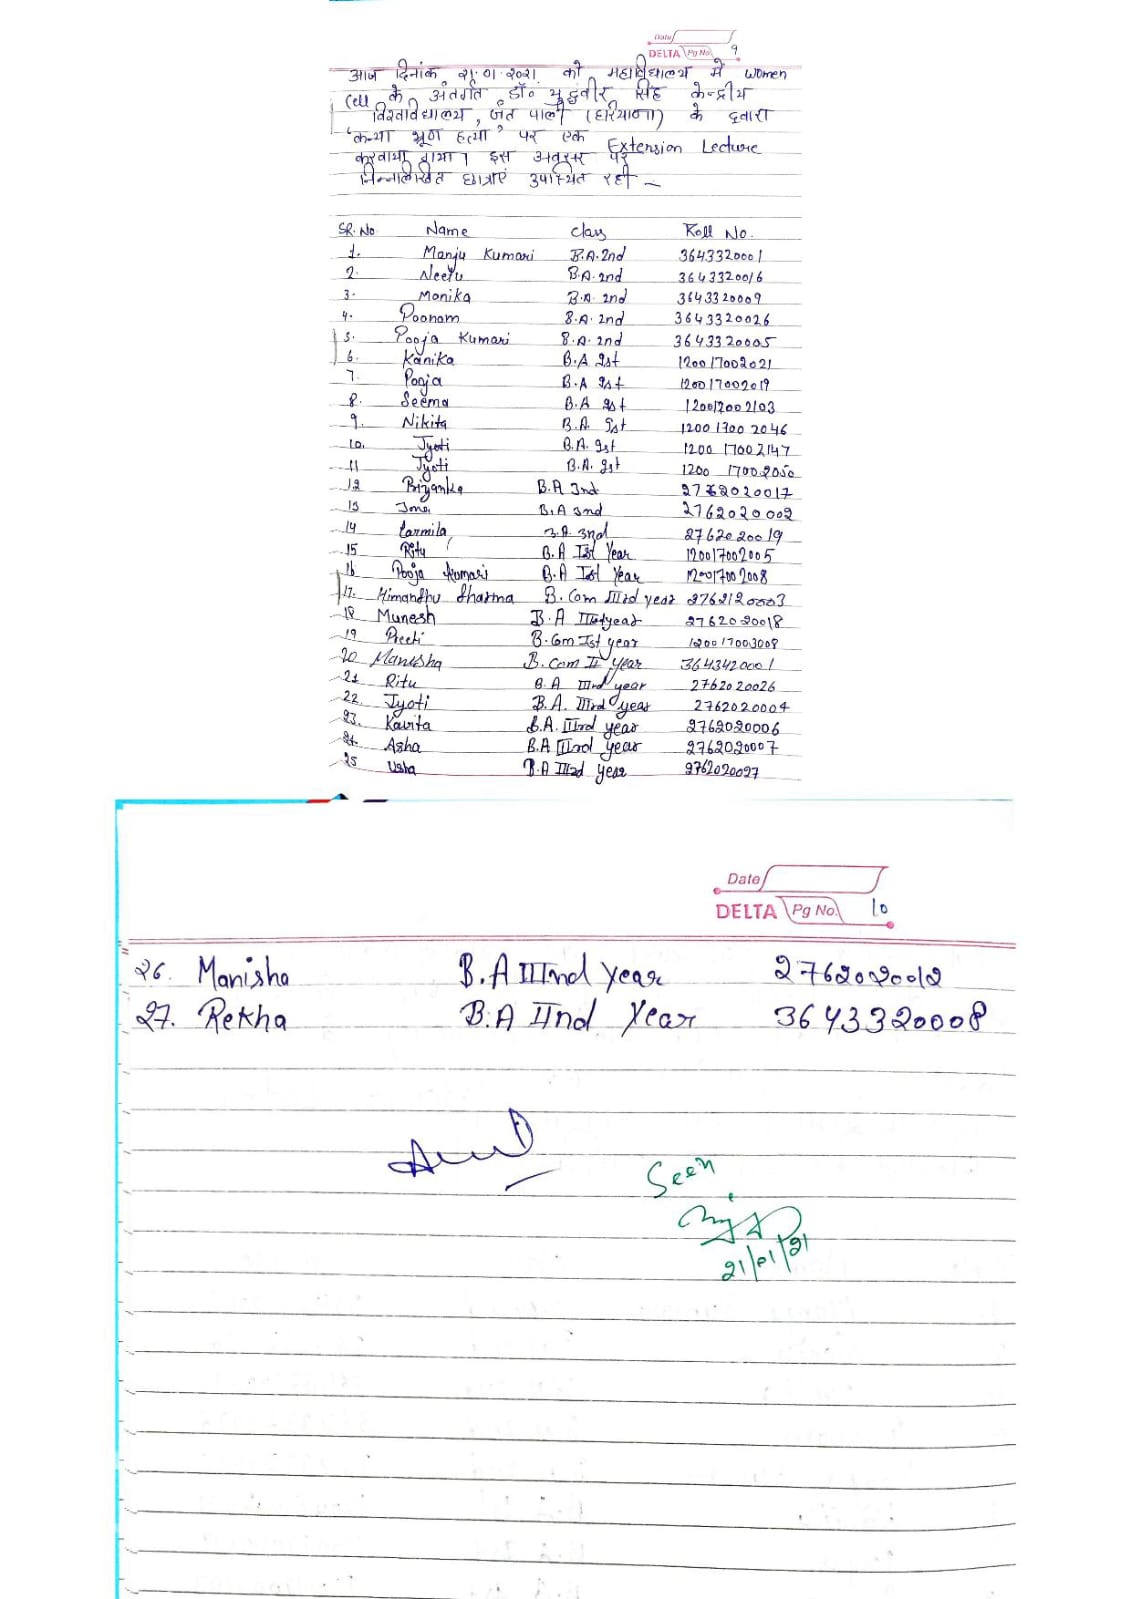 Date
DELTA Pg No. 9
आज दिनांक २१.०१.२०२१ को महाविद्यालय में Women
Cell के अंतर्गत डॉ० युद्धवीर सिंह केन्द्रीय
विश्वविद्यालय, जंत पाली (हरियाणा) के द्वारा
'कन्या भ्रूण हत्या' पर एक Extension Lecture
करवाया गया। इस अवसर पर
निम्नलिखित छात्राएं उपस्थित रही -
SR. No Name Class Roll No.
1. Manju Kumari B.A. 2nd 3643320001
2. Neetu B.A. 2nd 3643320016
3. Monika B.A. 2nd 3643320009
4. Poonam B.A. 2nd 3643320026
5. Pooja Kumari B.A. 2nd 3643320005
6. Kanika B.A Ist 120017002021
7. Pooja B.A Ist 120017002019
8. Seema B.A Ist 120017002103
9. Nikita B.A. Ist 120017002046
10. Jyoti B.A. Ist 120017002147
11 Jyoti B.A. Ist 120017002050
12 Priyanka B.A 3nd 2762020017
13 B.A 3nd 2762020002
14 B.A. 3nd 2762020019
15 Ritu B.A Ist Year 120017002005
16 Pooja Kumari B.A Ist Year 120017002008
17. Himanshu Sharma B. Com IIIrd year 2762120003
18 Munesh B.A IIIrdyear 2762020018
19 Preeti B.Com Ist year 120017003008
20 Manisha B. Com II year 3643420001
21 Ritu B.A IIIrd year 2762020026
22. Jyoti B.A. IIIrd year 2762020004
23. Kavita B.A. IIIrd year 2762020006
24. Asha B.A IIIrd year 2762020007
25 Usha B.A IIIrd Year 2762020027
Date
DELTA Pg No. 10
26. Manisha B.A IIInd Year 2762020012
27. Rekha B.A IInd Year 3643320008
Seen
21/01/21